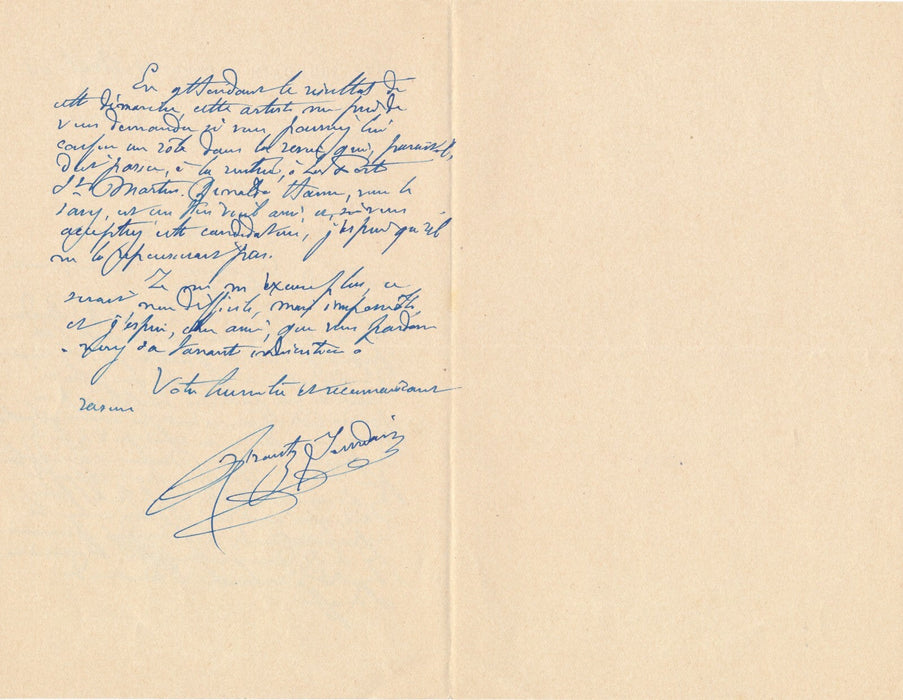 En attendant le résultat de
cette démarche, cette artiste me prie de
vous demander si vous pourriez lui
confier un rôle dans la revue qui, paraît-il,
doit passer, à la rentrée, à la Porte
St Martin. Reynaldo Hahn, vous le
savez, est un très vieil ami, et, si vous
acceptiez cette candidature, j'espère qu'il
ne la repousserait pas.
Je ne m'excuse plus, ce
serait non difficile, mais impossible,
et j'espère, cher ami, que vous pardon
- nerez sa indiscrétion à
Votre humble et reconnaissant
raseur
Frantz Jourdain